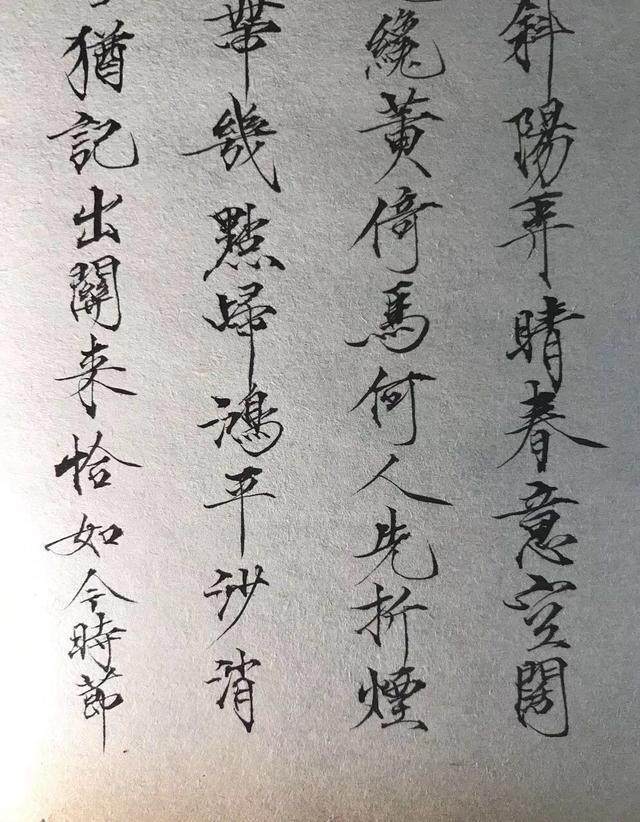 斜陽弄晴春意空闊
纔黃倚馬何人先折煙
帶幾點歸鴻平沙消
猶記出關来恰如今時節